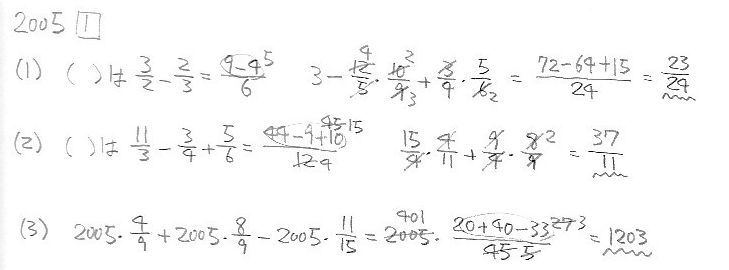 2005 1
(1) ( )は 3/2 - 2/3 = 9-4 5/6 3 - 12 4/5 · 10 2/9 3 + 3/4 · 5/6 2 = 72-64+15/24 = 23/24
(2) ( )は 11/3 - 3/4 + 5/6 = 44-9+10 45 15/12 4 15/4 · 4/11 + 9/4 · 8 2/9 = 37/11
(3) 2005 · 4/9 + 2005 · 8/9 - 2005 · 11/15 = 2005 401 · 20+40-33 27 3/45 5 = 1203